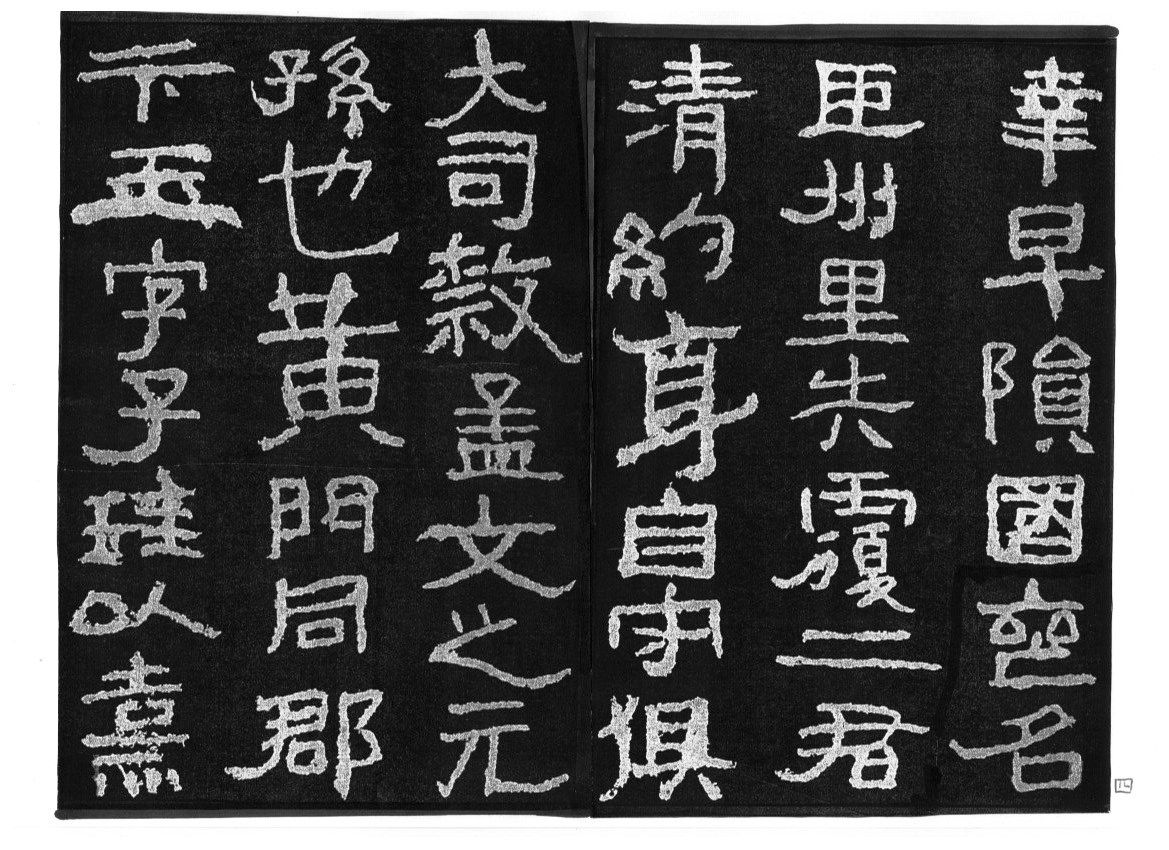 幸早隕國喪名
臣州里失覆二君
清約身自守俱
大司隸孟文之元
孫也黃門同郡
卞玉字子珪以熹
四